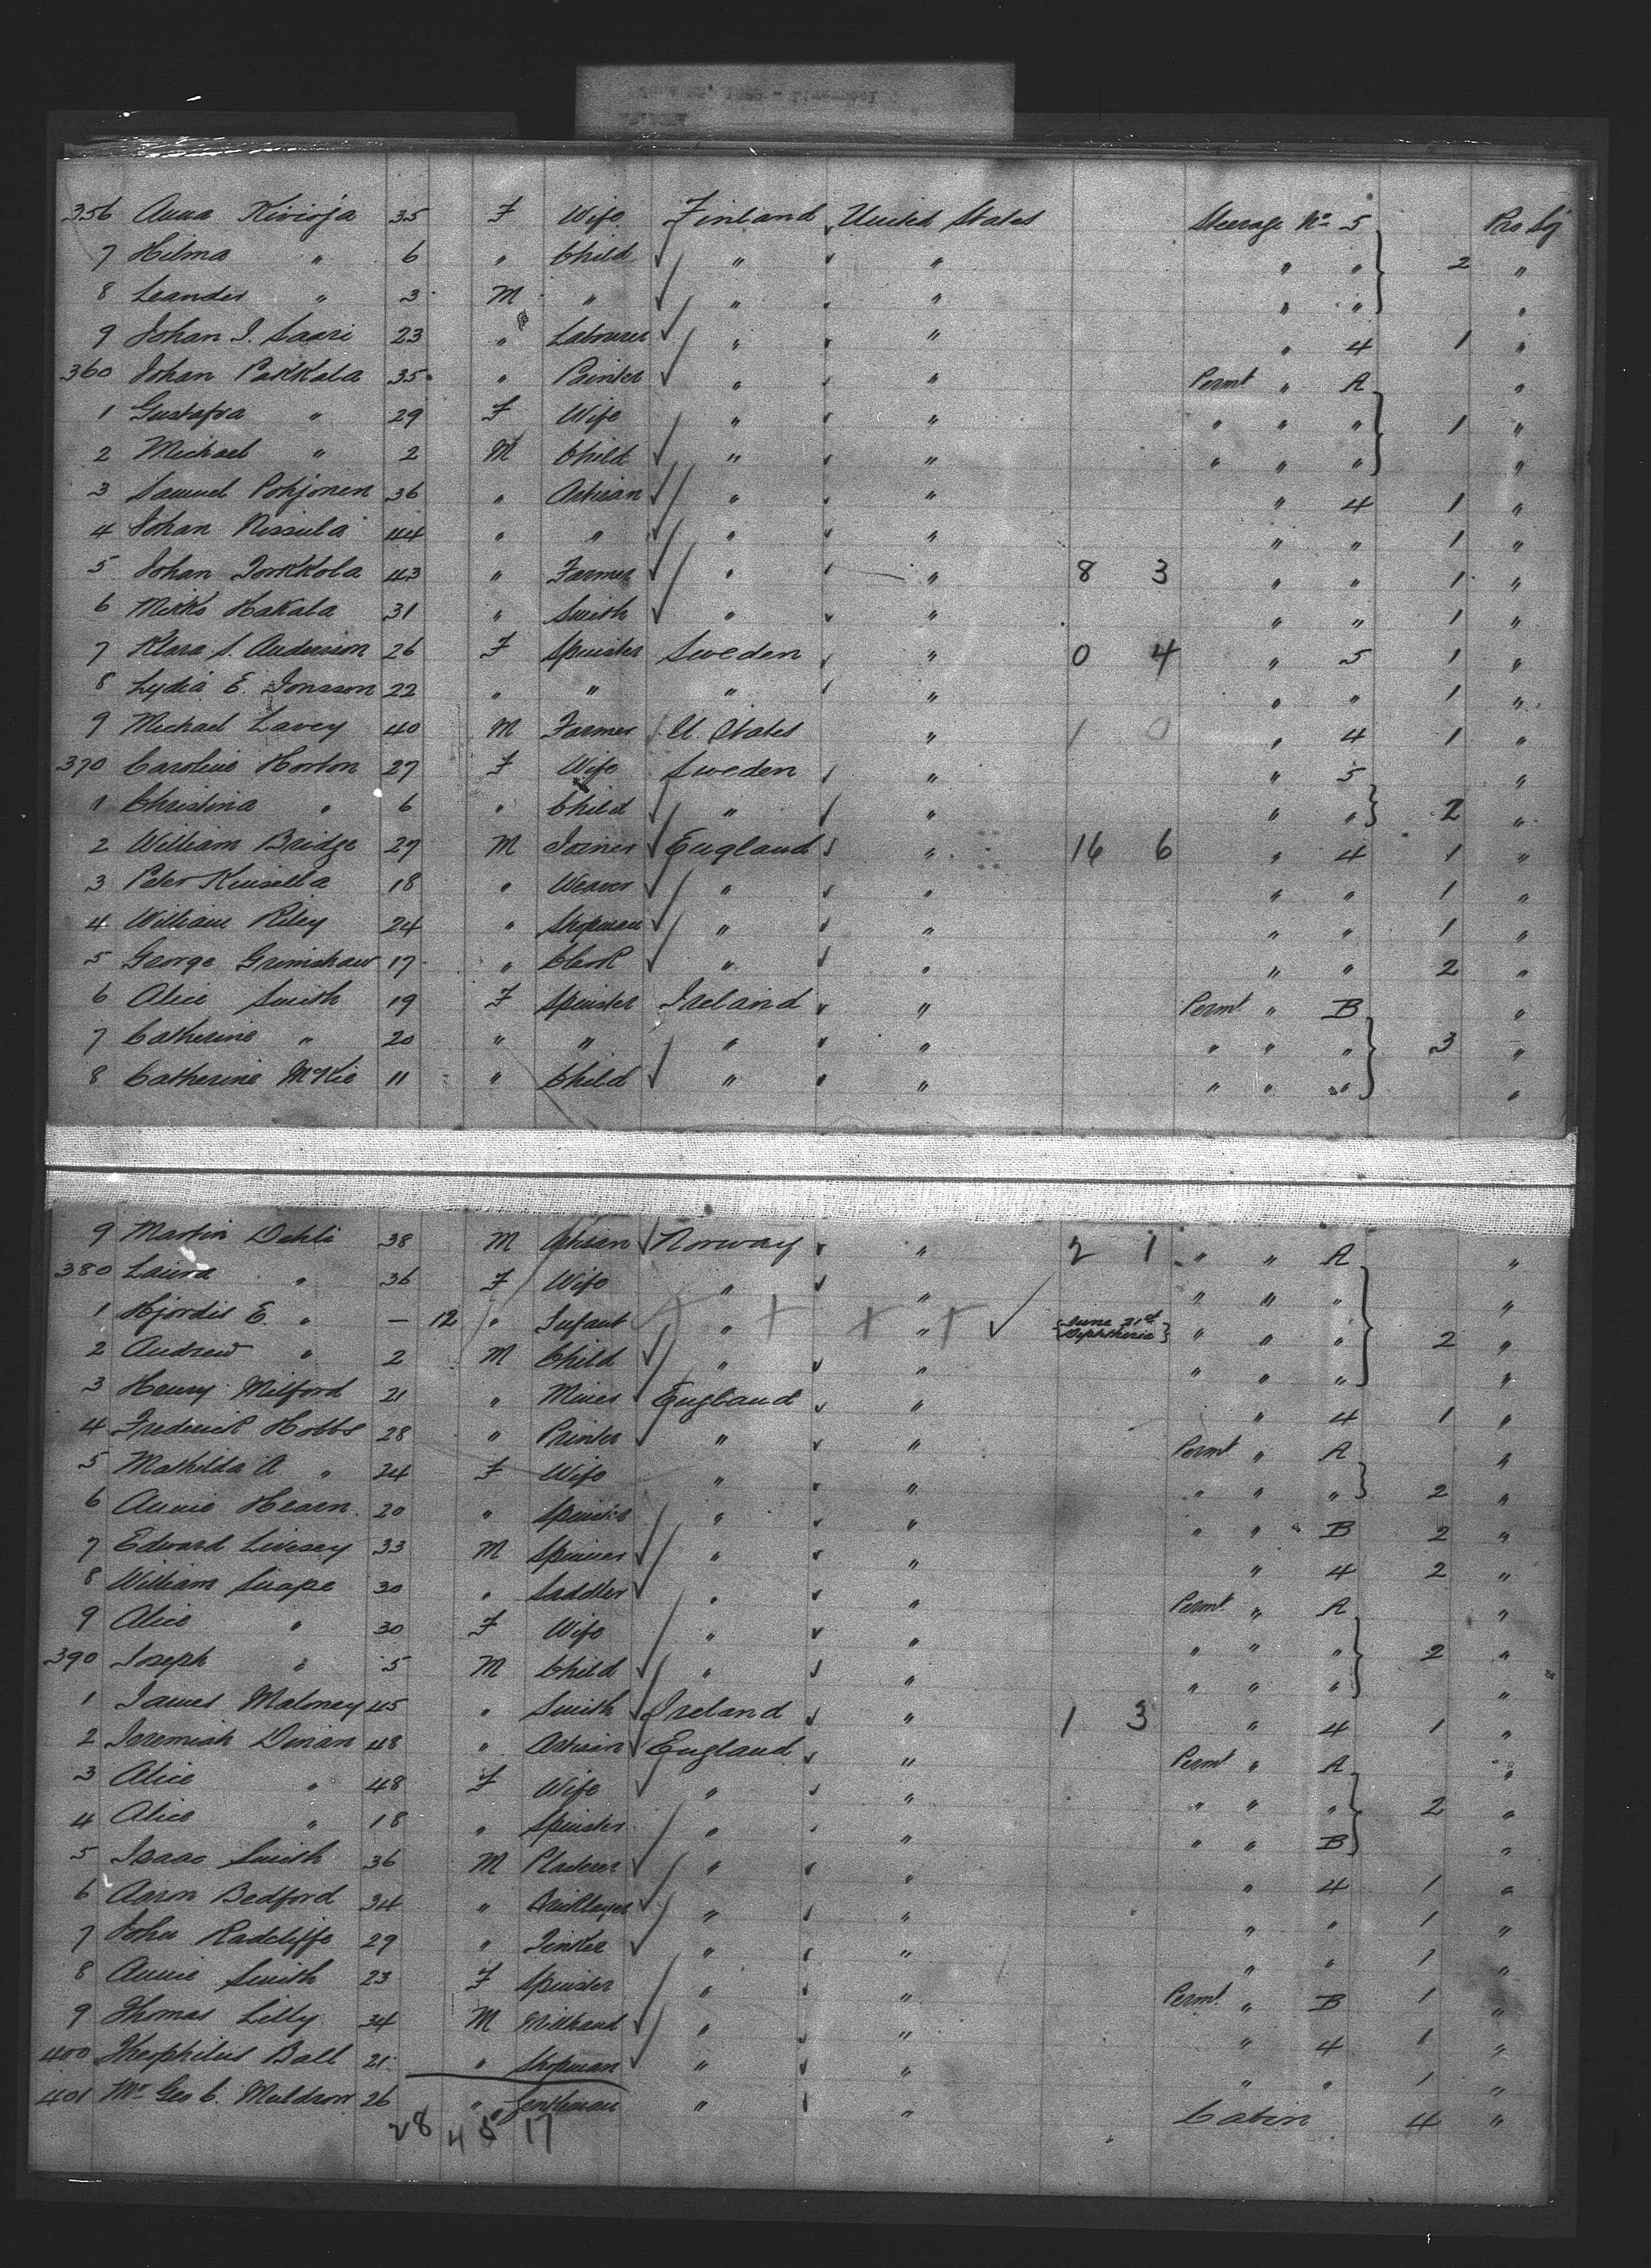 356 Anna Kivioja 35 F Wife Finland United States Steerage No 5 Pro Sj
7 Hilma " 6 " Child " " " " 2 "
8 Leander " 3 M " " " " " "
9 Johan I. Saari 23 " Labourer " " " 4 1 "
360 Johan Pakkala 35 " Painter " " Permt " A "
1 Gustafva " 29 F Wife " " " " " 1 "
2 Michael " 2 M Child " " " " " "
3 Samuel Pohjonen 36 " Artisan " " " 4 1 "
4 Johan Nissula 44 " " " " " " 1 "
5 Johan Torkkola 43 " Farmer " " 8 3 " " 1 "
6 Mikko Hakala 31 " Smith " " " " 1 "
7 Klara S. Anderson 26 F Spinster Sweden " 0 4 " 5 1 "
8 Lydia E. Jonsson 22 " " " " " " 1 "
9 Michael Lavey 40 M Farmer U. States " 1 0 " 4 1 "
370 Caroline Horton 27 F Wife Sweden " " 5 "
1 Christina " 6 " Child " " " " 2 "
2 William Bridge 29 M Joiner England " 16 6 " 4 1 "
3 Peter Kinsella 18 " Weaver " " " " 1 "
4 William Riley 24 " Shopman " " " " 1 "
5 George Grimshaw 17 " Clerk " " " " 2 "
6 Alice Smith 19 F Spinster Ireland " Permt " B "
7 Catherine " 20 " " " " " " " 3 "
8 Catherine McKie 11 " Child " " " " " "
9 Martin Dehli 38 M Artisan Norway " 2 1 " " A "
380 Laura " 36 F Wife " " " " " "
1 Hjordis E. " — 12 " Infant " " June 21st Diphtheria " " " 2 "
2 Andrew " 2 M Child " " " " " "
3 Henry Milford 21 " Miner England " " 4 1 "
4 Frederick Hobbs 28 " Printer " " Permt " A "
5 Mathilda A. " 24 F Wife " " " " " 2 "
6 Annie Hearn 20 " Spinster " " " " B 2 "
7 Edward Livesey 33 M Spinner " " " 4 2 "
8 William Snape 30 " Saddler " " Permt " A "
9 Alice " 30 F Wife " " " " " 2 "
390 Joseph " 5 M Child " " " " " "
1 James Maloney 45 " Smith Ireland " 1 3 " 4 1 "
2 Jeremiah Dinan 48 " Artisan England " Permt " A "
3 Alice " 48 F Wife " " " " " 2 "
4 Alice " 18 " Spinster " " " " B "
5 Isaac Smith 36 M Plasterer " " " 4 1 "
6 Aaron Bedford 34 " Bricklayer " " " " 1 "
7 John Radcliffe 29 " Tinker " " " " 1 "
8 Annie Smith 23 F Spinster " " Permt " B 1 "
9 Thomas Lilly 34 M Millhand " " " 4 1 "
400 Theophilus Ball 21 " Shopman " " " " 1 "
401 Mr Geo C. Muldrow 26 " Gentleman " " Cabin 4 "
28 4 5 17